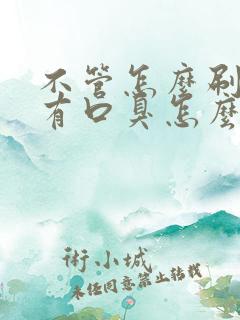 不管怎麼刷
有口臭怎麼
術小城
未经同意禁止转载